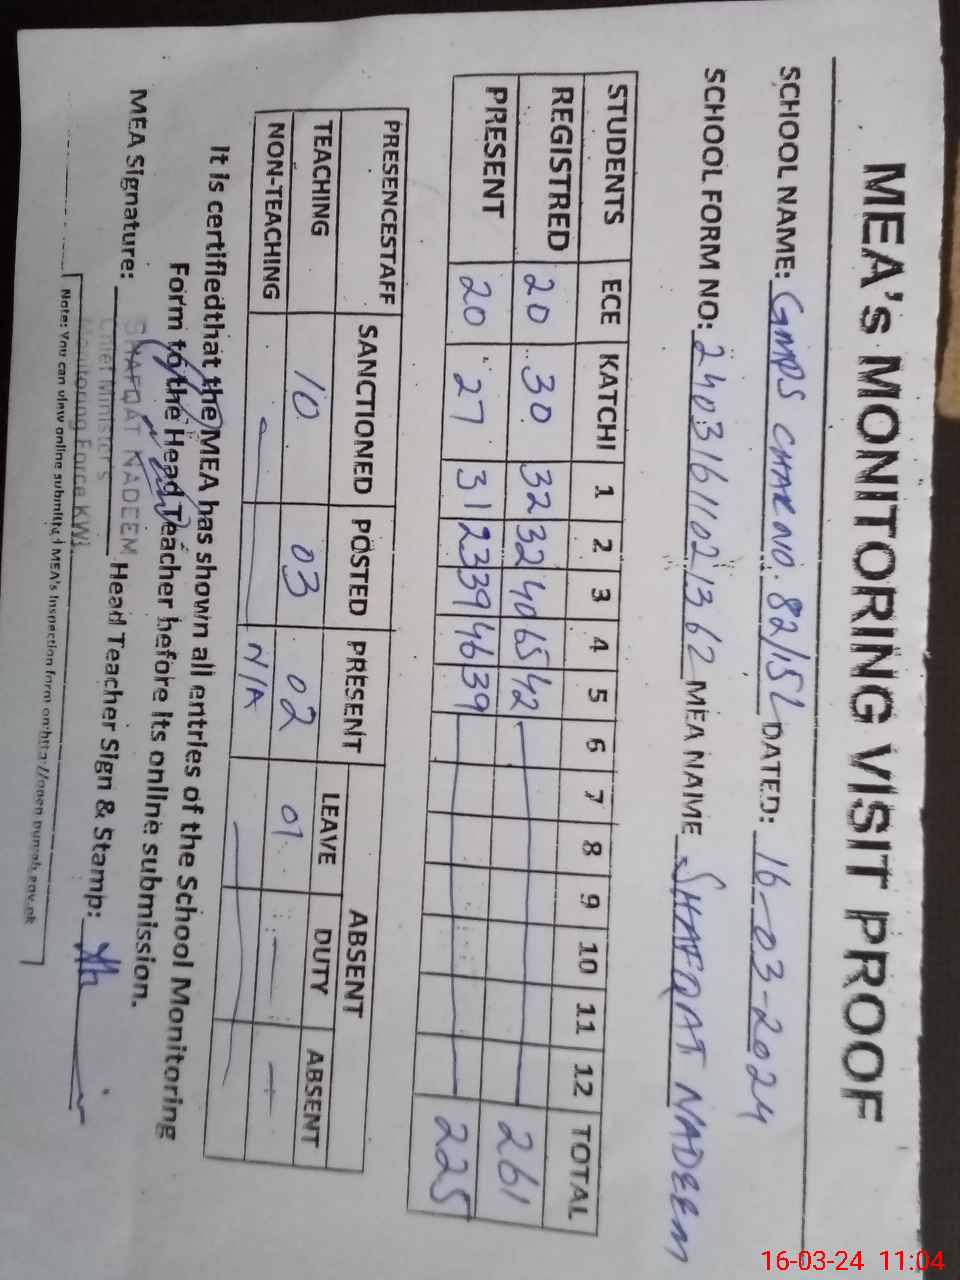 MEA's MONITORING VISIT PROOF
SCHOOL NAME: GMPS CHAK NO. 82/15L DATED: 16-03-2024
SCHOOL FORM NO: 24031611021362 MEA NAME SHAFQAT NADEEM
STUDENTS ECE KATCHI 1 2 3 4 5 6 7 8 9 10 11 12 TOTAL
REGISTRED 20 30 32 32 40 65 42 261
PRESENT 20 27 31 23 39 46 39 225
PRESENCESTAFF SANCTIONED POSTED PRESENT ABSENT
LEAVE DUTY ABSENT
TEACHING 10 03 02 01 - -
NON-TEACHING N/A
It is certifiedthat the MEA has shown all entries of the School Monitoring
Form to the Head Teacher before its online submission.
MEA Signature: Head Teacher Sign & Stamp:
SHAFQAT NADEEM
Chief Minister's
Monitoring Force KWL
Note: You can view online submitted MEA's Inspection form on:http://open.punjab.gov.pk
16-03-24 11:04